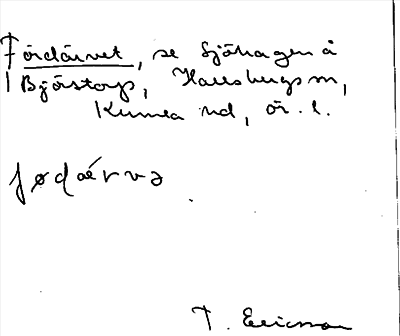 Fördärvet, se Sjöhagen å
Björstorp, Hallsbergs sn,
Kumla hd, ör. l.
fødaærvə
T. Ericsson